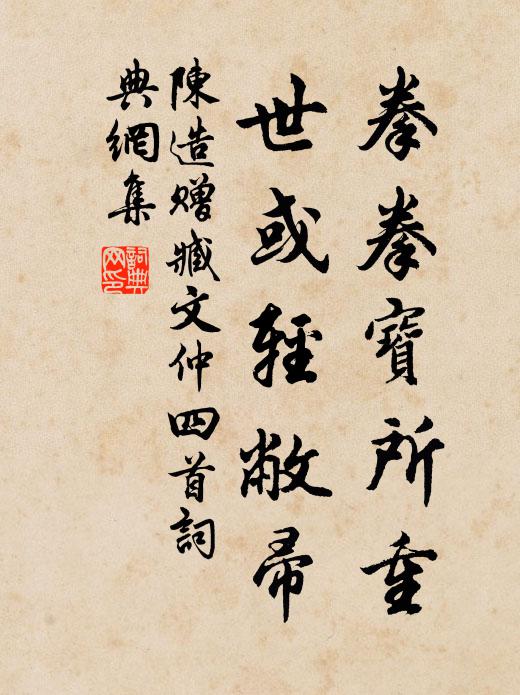 拳拳寶所重
世或輕敝帚
陳造贈臧文仲四首詞
典網集
詞典
网印